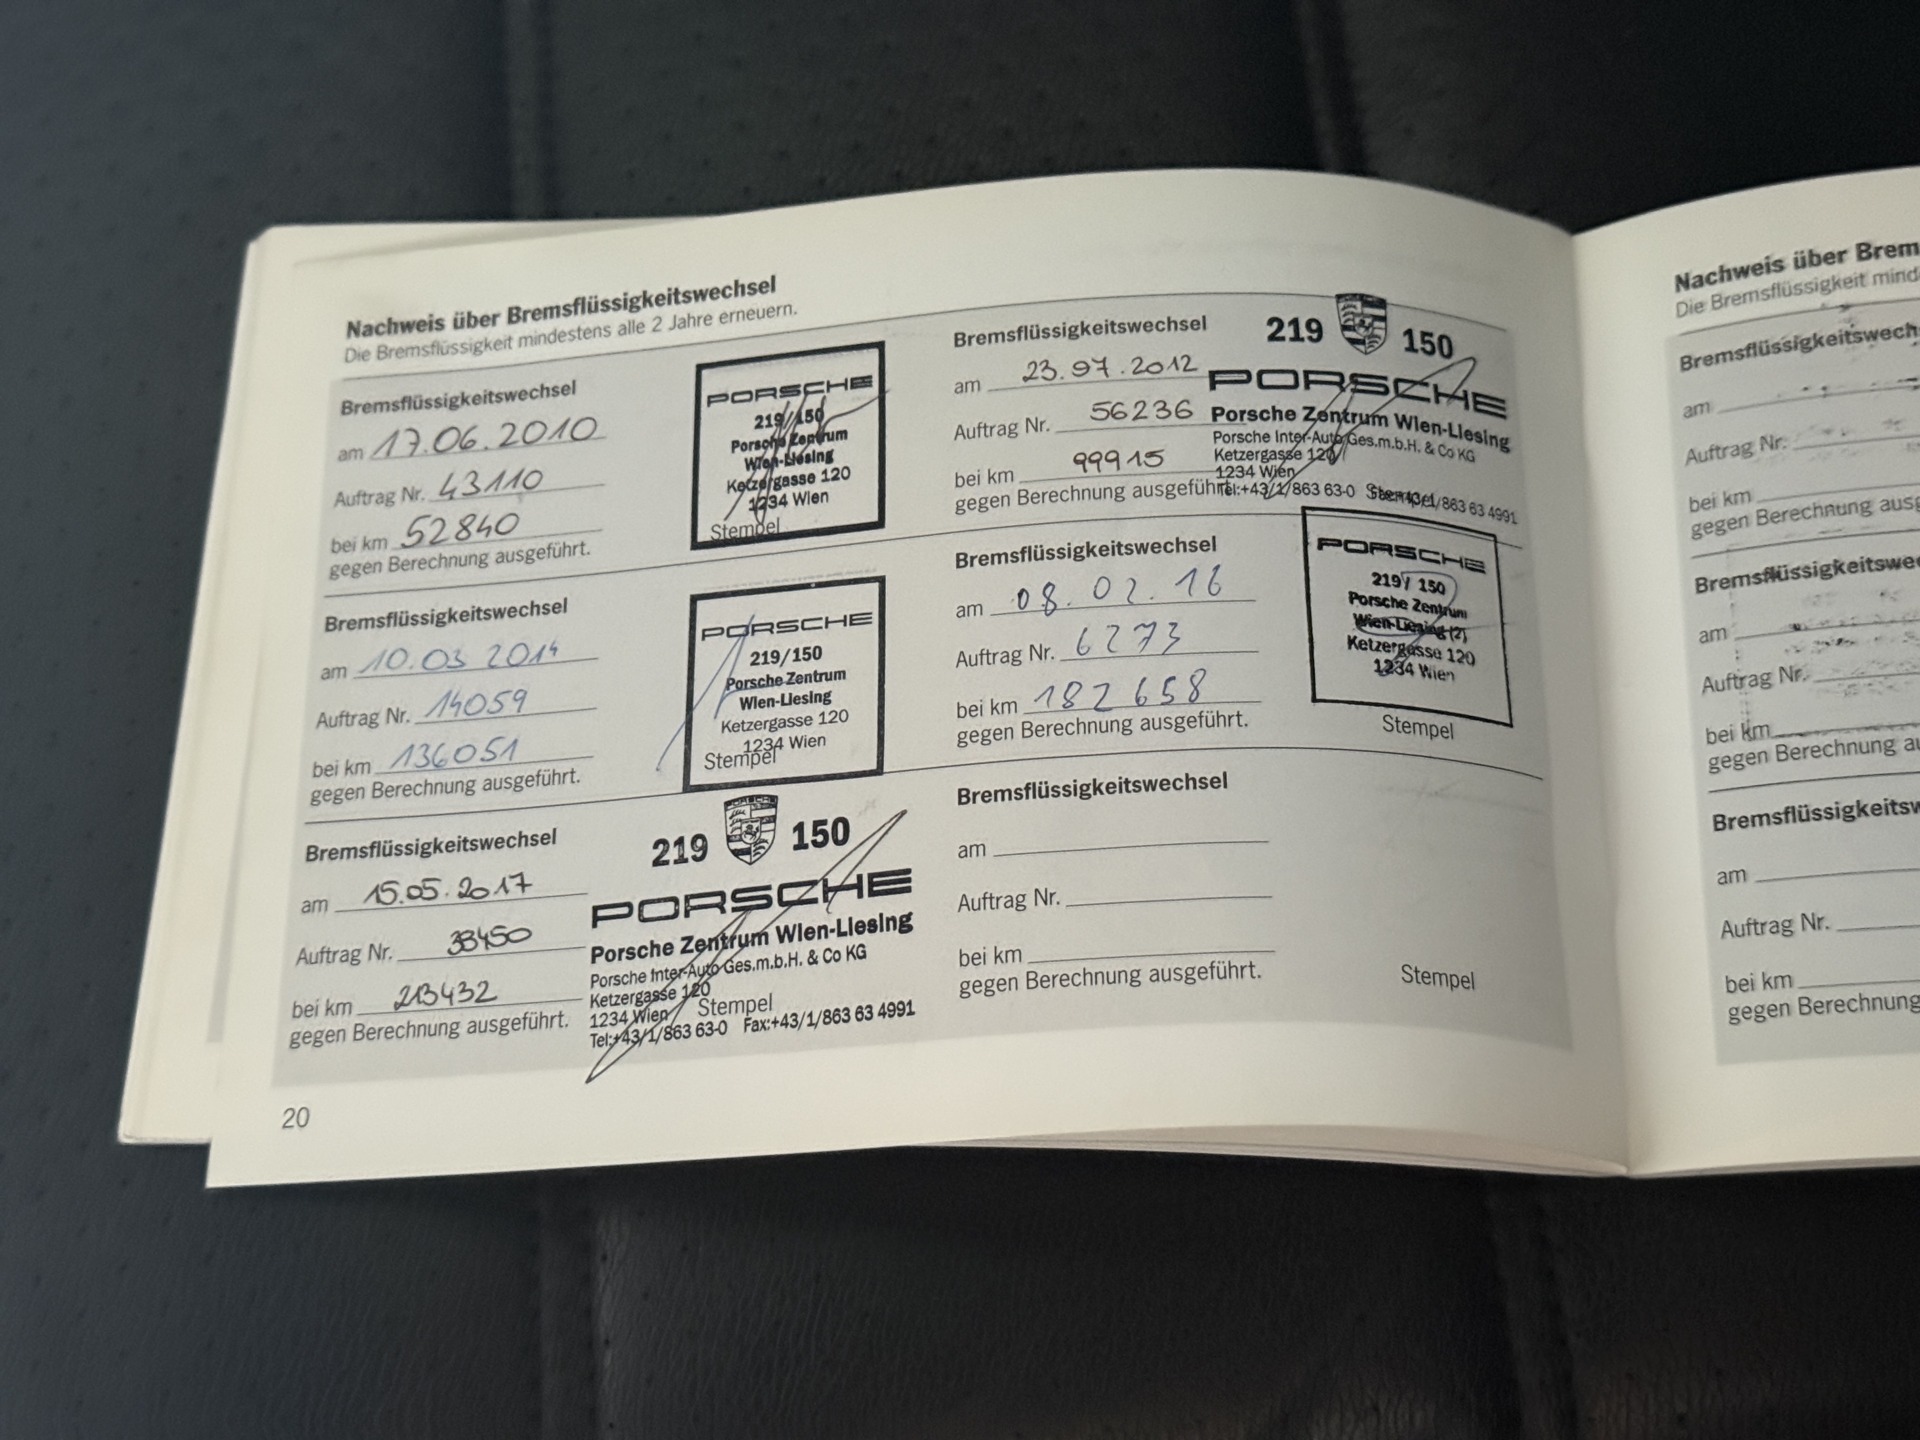 Nachweis über Bremsflüssigkeitswechsel
Die Bremsflüssigkeit mindestens alle 2 Jahre erneuern.
Bremsflüssigkeitswechsel
am 17.06.2010
Auftrag Nr. 43110
bei km 52840
gegen Berechnung ausgeführt.
PORSCHE
219/150
Porsche Zentrum
Wien-Liesing
Ketzergasse 120
1234 Wien
Stempel
Bremsflüssigkeitswechsel
am 23.07.2012
Auftrag Nr. 56236
bei km 99915
gegen Berechnung ausgeführt.
219 150
PORSCHE
Porsche Zentrum Wien-Liesing
Porsche Inter-Auto Ges.m.b.H. & Co KG
Ketzergasse 120
1234 Wien
Tel:+43/1/863 63-0
Stempel
Bremsflüssigkeitswechsel
am 10.03 2014
Auftrag Nr. 14059
bei km 136051
gegen Berechnung ausgeführt.
PORSCHE
219/150
Porsche Zentrum
Wien-Liesing
Ketzergasse 120
1234 Wien
Stempel
Bremsflüssigkeitswechsel
am 08.02.16
Auftrag Nr. 6273
bei km 182 658
gegen Berechnung ausgeführt.
PORSCHE
219/ 150
Porsche Zentrum
Wien-Liesing (2)
Ketzergasse 120
1234 Wien
Stempel
Bremsflüssigkeitswechsel
am 15.05.2017
Auftrag Nr. 33450
bei km 213432
gegen Berechnung ausgeführt.
PORSCHE
219 150
PORSCHE
Porsche Zentrum Wien-Liesing
Porsche Inter-Auto Ges.m.b.H. & Co KG
Ketzergasse 120
1234 Wien
Stempel
Tel:+43/1/863 63-0 Fax:+43/1/863 63 4991
Bremsflüssigkeitswechsel
am
Auftrag Nr.
bei km
gegen Berechnung ausgeführt.
Stempel
20
Nachweis über Brem
Die Bremsflüssigkeit mind
Bremsflüssigkeitswech
am
Auftrag Nr.
bei km
gegen Berechnung ausg
Bremsflüssigkeitswe
am
Auftrag Nr.
bei km
gegen Berechnung au
Bremsflüssigkeitsw
am
Auftrag Nr.
bei km
gegen Berechnung